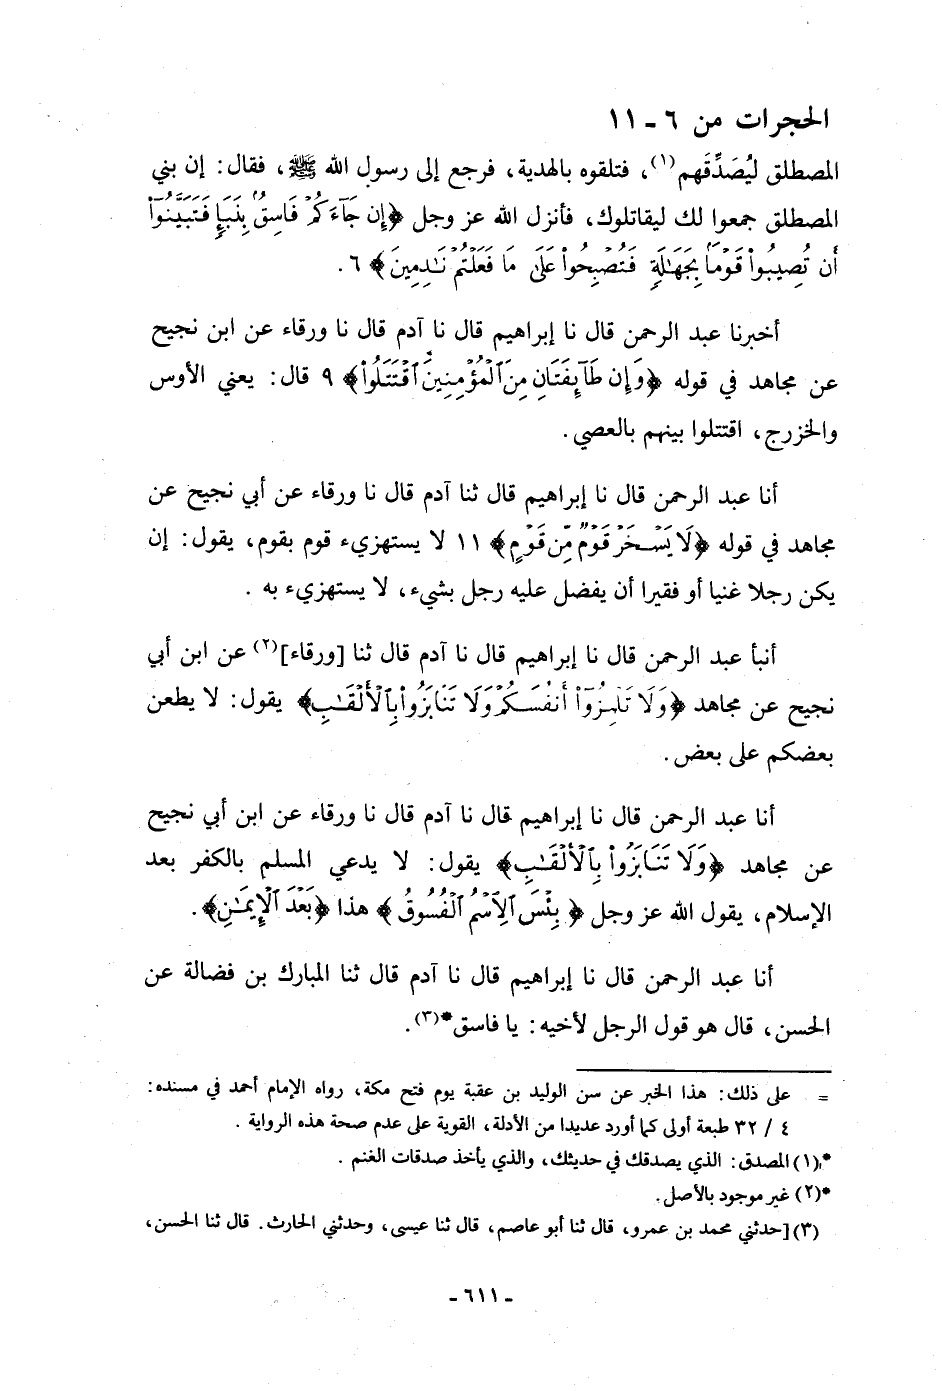 الحجرات من ٦ - ١١
المصطلق ليُصَدِّقَهم(١)، فتلقوه بالهدية، فرجع إلى رسول الله ﷺ، فقال: إن بني
المصطلق جمعوا لك ليقاتلوك، فأنزل الله عز وجل ﴿إِن جَآءَكُمْ فَاسِقٌۢ بِنَبَإٍ فَتَبَيَّنُوٓا۟
أَن تُصِيبُوا۟ قَوْمًۢا بِجَهَـٰلَةٍ فَتُصْبِحُوا۟ عَلَىٰ مَا فَعَلْتُمْ نَـٰدِمِينَ﴾ ٦.
أخبرنا عبد الرحمن قال نا إبراهيم قال نا آدم قال نا ورقاء عن ابن نجيح
عن مجاهد في قوله ﴿وَإِن طَآئِفَتَانِ مِنَ ٱلْمُؤْمِنِينَ ٱقْتَتَلُوا۟﴾ ٩ قال: يعني الأوس
والخزرج، اقتتلوا بينهم بالعصي.
أنا عبد الرحمن قال نا إبراهيم قال ثنا آدم قال نا ورقاء عن أبي نجيح عن
مجاهد في قوله ﴿لَا يَسْخَرْ قَوْمٌ مِّن قَوْمٍ﴾ ١١ لا يستهزيء قوم بقوم، يقول: إن
يكن رجلا غنيا أو فقيرا أن يفضل عليه رجل بشيء، لا يستهزيء به .
أنبأ عبد الرحمن قال نا إبراهيم قال نا آدم قال ثنا [ورقاء](٢) عن ابن أبي
نجيح عن مجاهد ﴿وَلَا تَلْمِزُوٓا۟ أَنفُسَكُمْ وَلَا تَنَابَزُوا۟ بِٱلْأَلْقَـٰبِ﴾ يقول: لا يطعن
بعضكم على بعض.
أنا عبد الرحمن قال نا إبراهيم قال نا آدم قال نا ورقاء عن ابن أبي نجيح
عن مجاهد ﴿وَلَا تَنَابَزُوا۟ بِٱلْأَلْقَـٰبِ﴾ يقول: لا يدعي المسلم بالكفر بعد
الإسلام، يقول الله عز وجل ﴿بِئْسَ ٱلِٱسْمُ ٱلْفُسُوقُ﴾ هذا ﴿بَعْدَ ٱلْإِيمَـٰنِ﴾.
أنا عبد الرحمن قال نا إبراهيم قال نا آدم قال ثنا المبارك بن فضالة عن
الحسن، قال هو قول الرجل لأخيه: يا فاسق*(٣).
= على ذلك: هذا الخبر عن سن الوليد بن عقبة يوم فتح مكة، رواه الإمام أحمد في مسنده:
٤ / ٣٢ طبعة أولى كما أورد عديدا من الأدلة، القوية على عدم صحة هذه الرواية .
*(١) المصدق: الذي يصدقك في حديثك، والذي يأخذ صدقات الغنم .
*(٢) غير موجود بالأصل.
(٣) [حدثني محمد بن عمرو، قال ثنا أبو عاصم، قال ثنا عيسى، وحدثني الحارث. قال ثنا الحسن،
- ٦١١ -